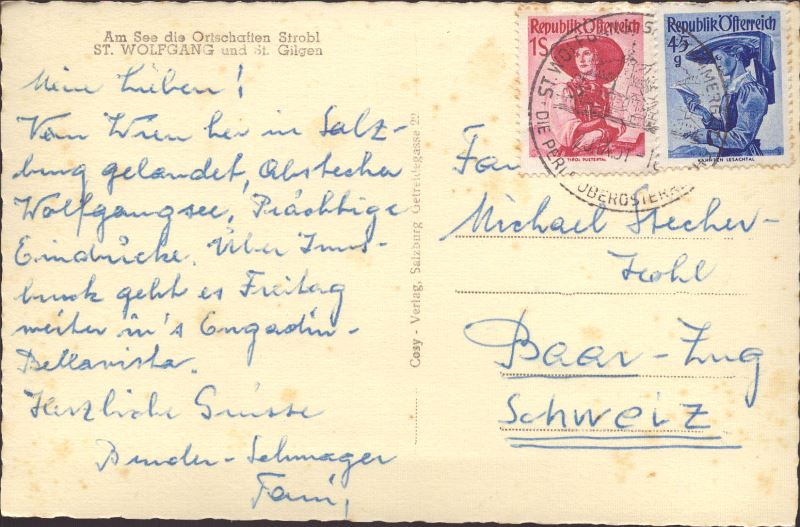 Am See die Ortschaften Strobl
ST. WOLFGANG und St. Gilgen
Meine Lieben!
Von Wien her in Salz-
burg gelandet, Abstecher
Wolfgangsee, Prächtige
Eindrücke. Über Inns-
bruck geht es Freitag
weiter in's Engadin-
Bellavista.
Herzliche Grüsse
Binder-Schwager
Fam,
Cosy - Verlag, Salzburg Getreidegasse 22
Republik Österreich
1S
TIROL PUSTERTAL
Republik Österreich
45
g
KÄRNTEN LESACHTAL
ST. WOLFGANG
DIE PERLE OBERÖSTERR
Fam
Michael Stecher-
Hohl
Baar-Zug
Schweiz